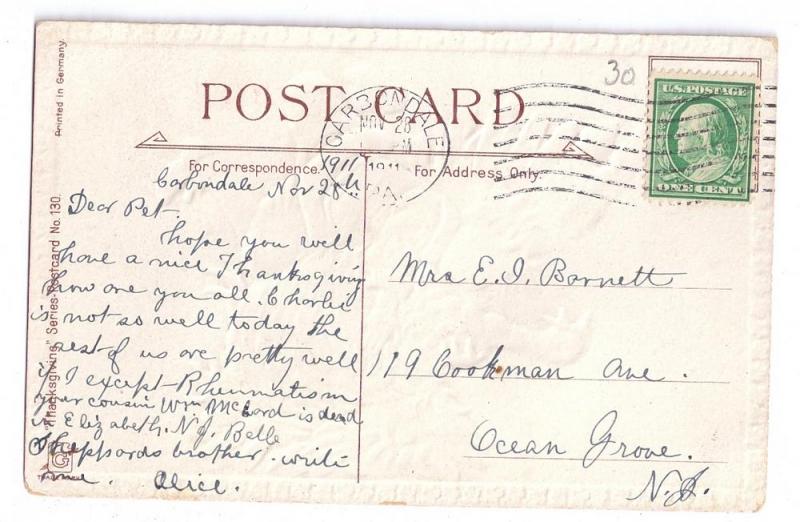 Printed in Germany.
"Thanksgiving" Series Postcard No. 130.
30
POST CARD
CARBONDALE
NOV 28
1911
PA.
U.S. POSTAGE
ONE CENT
For Correspondence.
For Address Only.
1911
Carbondale Nov 28th
Dear Pet-
hope you will
have a nice Thanksgiving
how are you all. Charlie
is not so well today the
rest of us are pretty well
if I except Rheumatism
your cousin Wm McCord is dead
in Elizabeth. N.J. Belle
Sheppards brother. write
Alice.
Mrs E. I. Barnett
119 Cookman Ave.
Ocean Grove.
N.J.